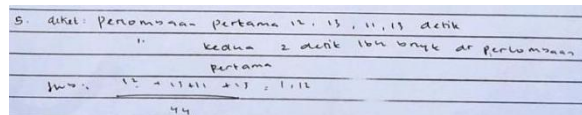 5. diket : perlombaan pertama 12, 13, 11, 13 detik
" kedua 2 detik lbh bnyk dr perlombaan
pertama
Jwb : 12 + 13 + 11 + 13 = 1,12
44